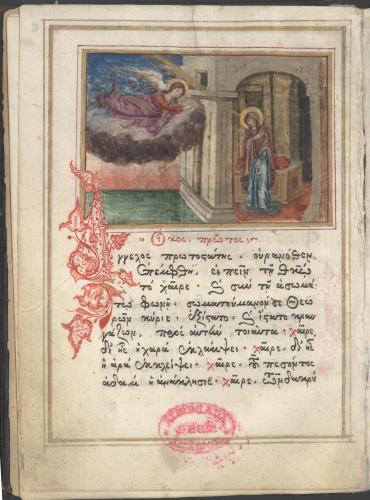 Οἶκος πρῶτος
Ἄγγελος πρωτοστάτης · οὐρανόθεν
ἐπέμφθη · εἰπεῖν τῇ θ̅κ̅ω̅
τὸ χαῖρε · καὶ σὺν τῇ ἀσωμά
τω φωνῇ · σωματούμενόν σε θεω
ρῶν κύριε · ἐξίστατο · καὶ ἵστατο κραυ
γάζων · πρὸς αὐτὴν τοιαῦτα · χαῖρε,
δι' ἧς ἡ χαρὰ ἐκλάμψει · χαῖρε · δι' ἧς
ἡ ἀρὰ ἐκλείψει · χαῖρε · τοῦ πεσόντος
ἀδὰμ ἡ ἀνάκλησις · χαῖρε · τῶν δακρύ